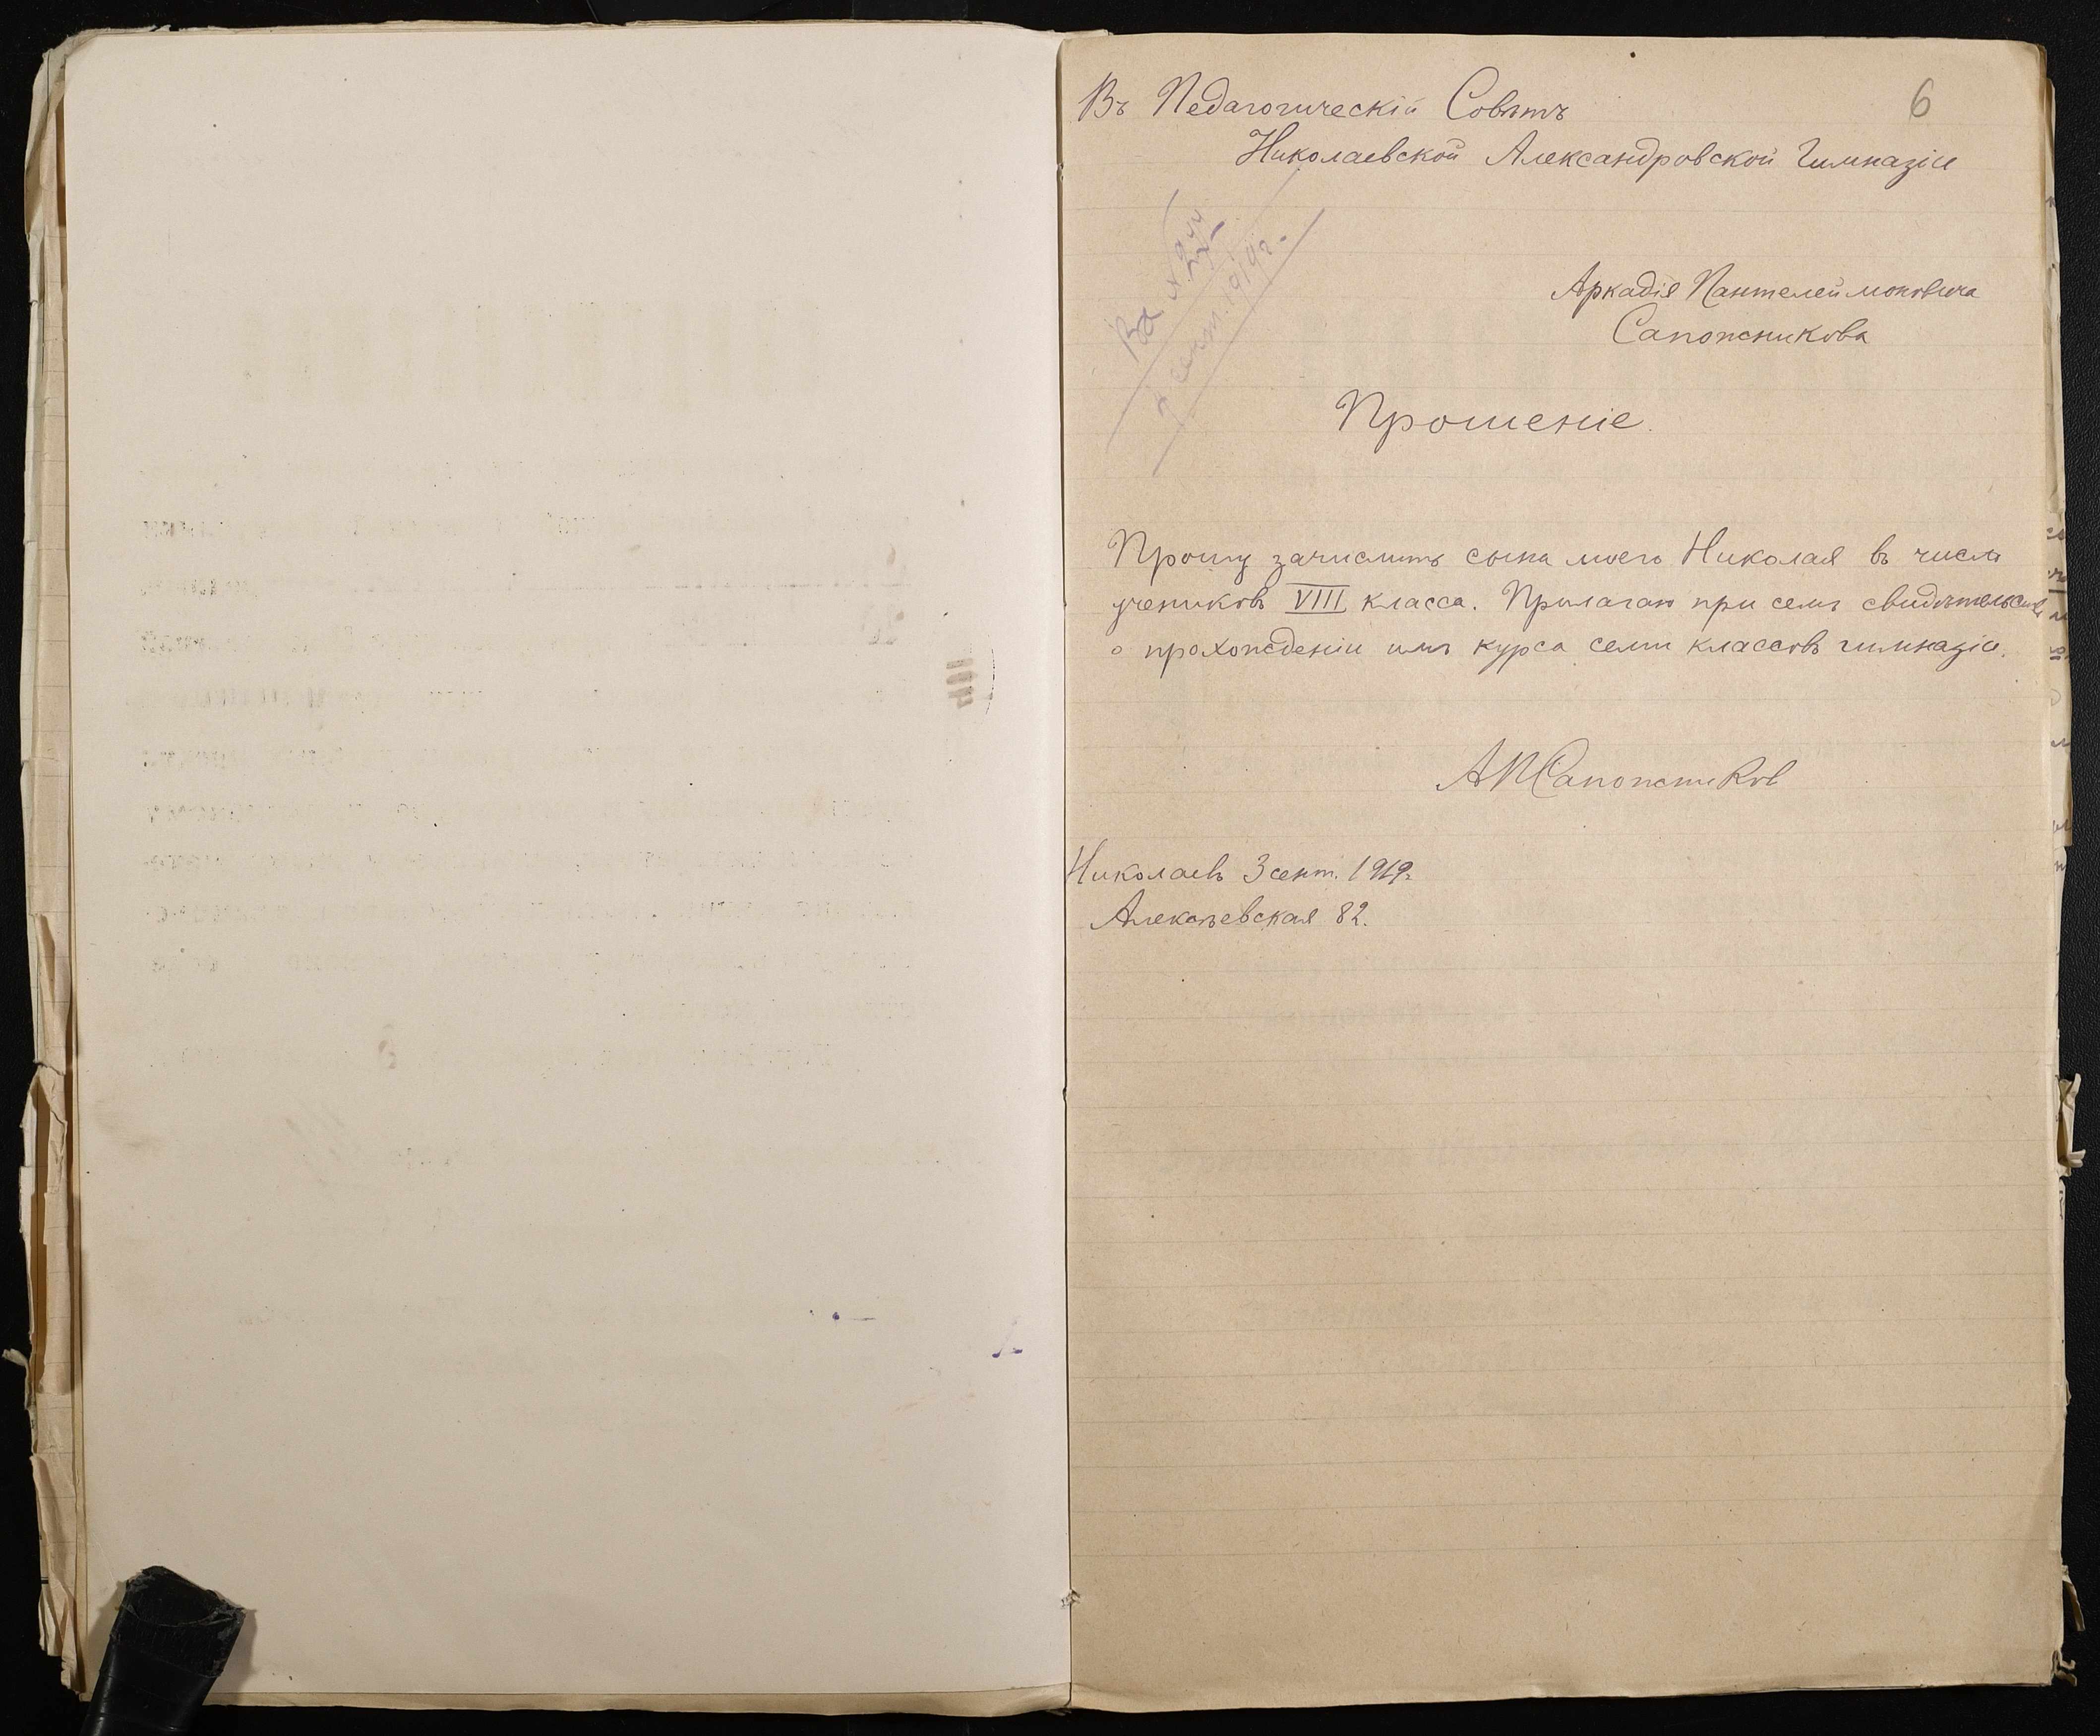 6
Въ Педагогическій Совѣтъ
Николаевской Александровской Гимназіи
Аркадія Пантелеймоновича
Сапожникова
Прошеніе.
Прошу зачислить сына моего Николая въ число
учениковъ VIII класса. Прилагаю при семъ свидѣтельство
о прохожденіи имъ курса семи классовъ гимназіи.
АПСапожников
Николаевъ 3 сент. 1919г.
Алексѣевская 82.